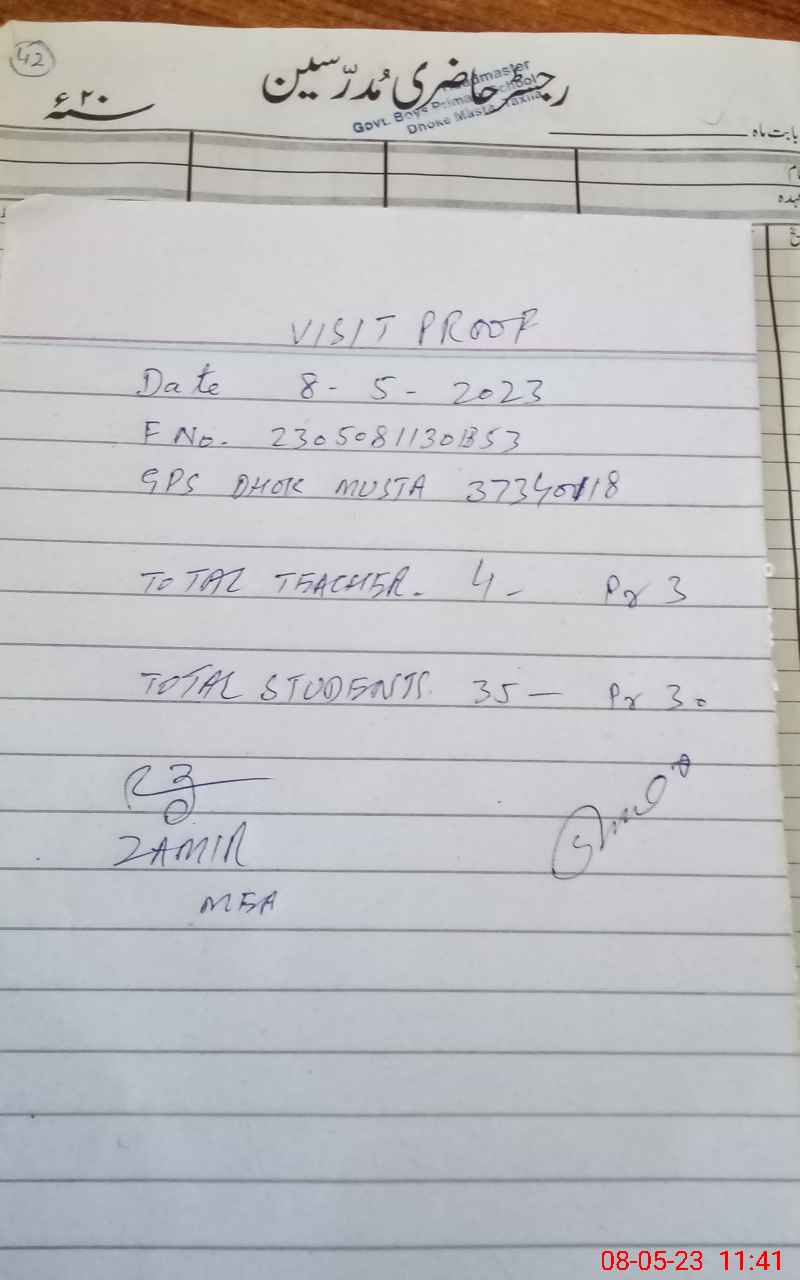 42
رجسٹر حاضری مُدرّسین
۲۰ء سنہ
Headmaster
Govt. Boys Primary School
Dhoke Musta Taxila
بابت ماہ
نام
عہدہ
VISIT PROOF
Date 8-5-2023
F No. 23050811301353
GPS DHOK MUSTA 37340118
TOTAL TEACHER. 4- Pr 3
TOTAL STUDENTS. 35- Pr 30
ZAMIR
MEA
08-05-23 11:41